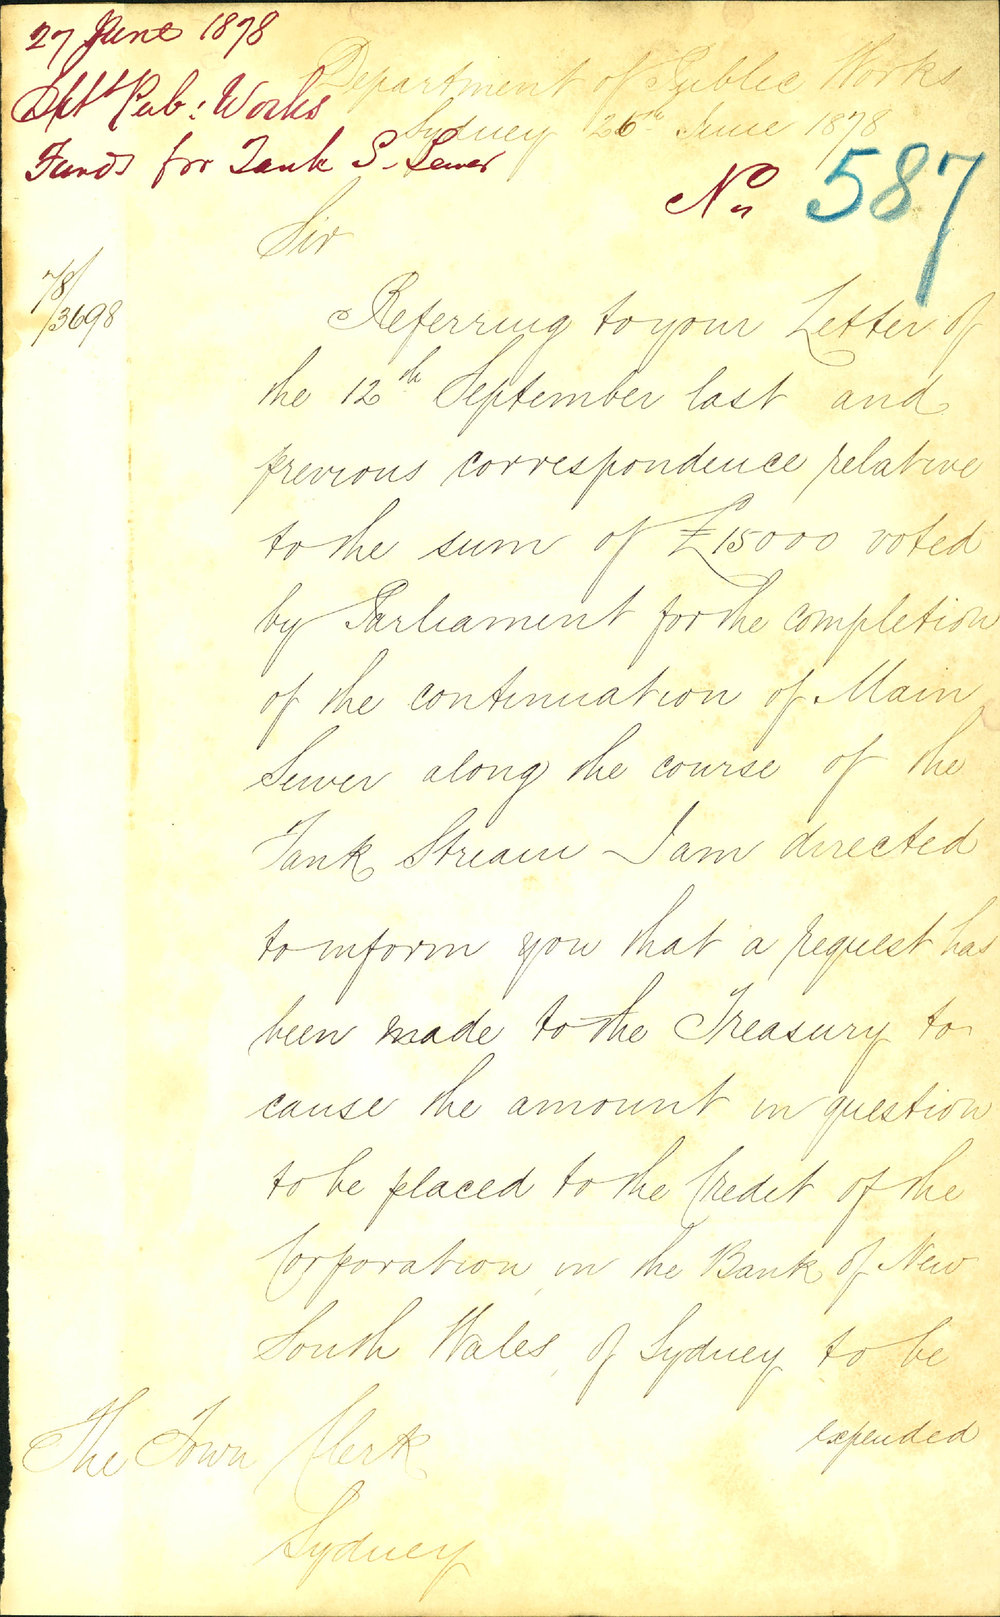 27 June 1878
Dept Pub: Works
Funds for Tank S. Sewer
Department of Public Works
Sydney 26th June 1878
No. 587
Sir
78/3698
Referring to your Letter of
the 12th September last and
previous correspondence relative
to the sum of £15000 voted
by Parliament for the completion
of the continuation of Main
Sewer along the course of the
Tank Stream I am directed
to inform you that a request has
been made to the Treasury to
cause the amount in question
to be placed to the Credit of the
Corporation in the Bank of New
South Wales, of Sydney to be
expended
The Town Clerk
Sydney